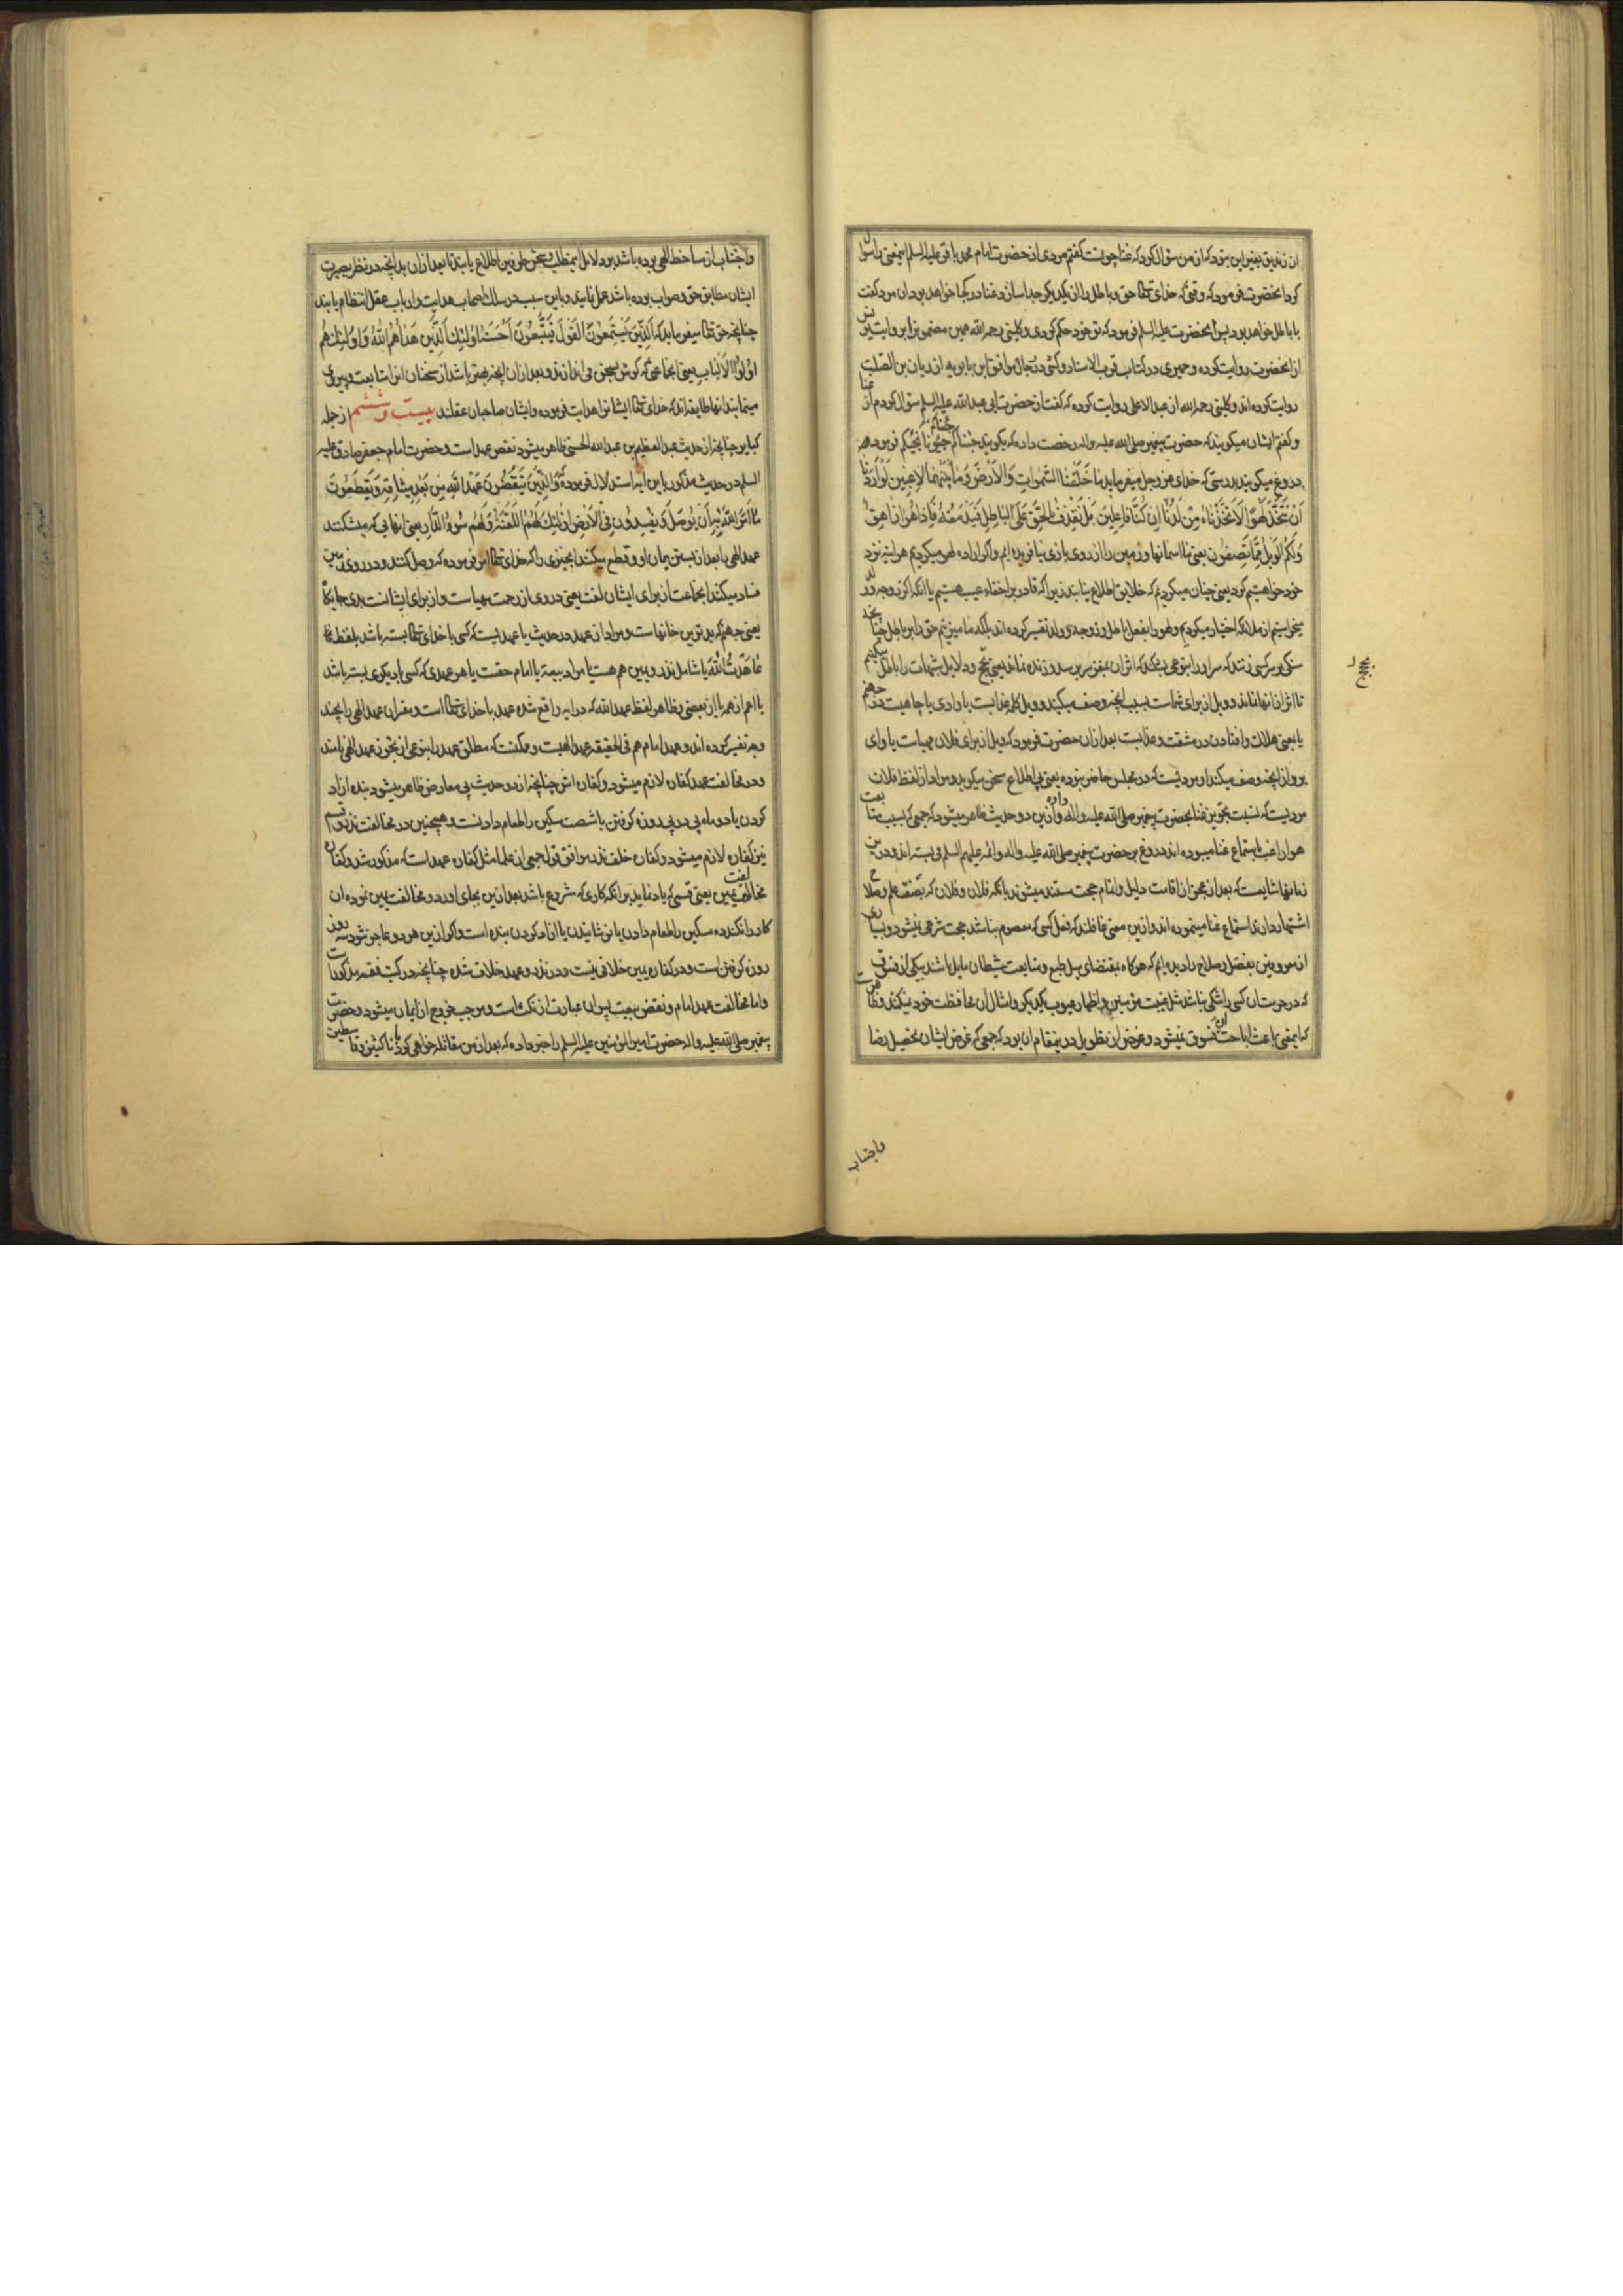 ان زندیق بغیر این بود که از من سؤال کرد که غنا چونست کفتم مردی از حضرت امام محمد باقر علیه السلم اینمعنی را سؤال
کرد انحضرت فرمود که وقتی که خدای تعالی حق و باطل را از یکدیگر جدا سازد غنا در کجا خواهد بود ان مرد کفت
با باطل خواهد بود پس انحضرت علیه السلم فرمود که تو خود حکم کردی و کلینی رحمه الله همین مضمونرا بروایت یونس
از انحضرت روایت کرده و حمیری در کتاب قرب الاسناد و کشی در رجال موافق ابن بابویه از ریان بن الصلت
روایت کرده اند و کلینی رحمه الله از عبد الاعلی روایت کرده که کفت از حضرت ابی عبد الله علیه السلم سؤال کردم از غنا
و کفتم ایشان میکویند که حضرت پیغمبر صلی الله علیه واله رخصت داده که بکویند جئناکم جئناکم حیونا نحیکم فرمود که
دروغ میکویند بدرستی که خدای عز وجل میفرماید ما خَلَقْنَا السَّمٰوَاتِ وَالْاَرْضَ وَمَا بَيْنَهُمَا لَاعِبِينَ لَوْ اَرَدْنَا
اَنْ نَتَّخِذَ لَهْوًا لَاتَّخَذْنَاهُ مِنْ لَدُنَّا اِنْ كُنَّا فَاعِلِينَ بَلْ نَقْذِفُ بِالْحَقِّ عَلَى الْبَاطِلِ فَيَدْمَغُهُ فَاِذَا هُوَ زَاهِقٌ
وَلَكُمُ الْوَيْلُ مِمَّا تَصِفُونَ یعنی ما اسمانها و زمین را از روی بازی نیافریده ایم و اکر اراده لهو میکردیم هر اینه نزد
خود خواهستیم کرد یعنی چنان میکردیم که خلایق اطلاع نیابند زیرا که قادر بر اخفاء عیب هستیم یا انکه اکر زوجه و ولد
میخواستیم از ملائکه اختیار میکردیم و لهو را بفعل باطل و زوجه و ولد تفسیر کرده اند بلکه ما میزنیم حق را بر باطل چنانچه
سنکی بر سر کسی زنند که سر او را بنوعی بشکند که اثر ان بمغز سر برسد و زنده نماند یعنی بحجج و دلایل شبهات را باطل میکنیم
تا اثر از انها نماند و ویل از برای شماست بسبب انچه وصف میکنید و ویل کلمه عذابست یا وادی یا چاهیست در جهنم
یا بمعنی هلاک و افتادن در مشقت و عذابست بعد ازان حضرت فرمود که ویل از برای فلان مهیاست یا وای
بر او از انچه وصف میکند او مردیست که در مجلس حاضر نبوده یعنی بی اطلاع سخن میکوید و مراد از لفظ فلان
مردیست که نسبت تجویز غنا بحضرت پیغمبر صلی الله علیه واله داده و ازین دو حدیث ظاهر میشود که جمعی که بسبب متابعت
هوا راغب باستماع غنا میبوده اند دروغ بر حضرت پیغمبر صلی الله علیه واله و ائمه علیهم السلم می بسته اند و درین
زمانها شایعست که بعد از عجز از اقامت دلیل و اتمام حجت مستند میشوند بانکه فلان و فلان که بصفت علم و صلاح
اشتهار دارند استماع غنا مینموده اند و ازین معنی غافلند که فعل کسی که معصوم نباشد حجت شرعی نمیشود و بسیاری
از معروفین بفضل و صلاح را دیده ایم که هرکاه بمقتضای میل طبع و متابعت شیطان مایل باشند بیکی از فسوق
که در حرمت ان کسی را شکی نباشد مثل غیبت مؤمنین و اظهار عیوب یکدیکر و امثال ان محافظت خود نمیکنند و ظاهرست
که اینمعنی باعث اباحت ان فسوق نمیشود و غرض از تطویل درینمقام ان بود که جمعی که غرض ایشان تحصیل رضا
بحجج
واجتناب
واجتناب از مساخط الهی بوده باشد بر دلایل اینمطلب بنحو طرفین اطلاع یابند تا بعد ازان بدانچه در نظر بصیرت
ایشان مطابق حق و صواب بوده باشد عمل نمایند و باین سبب در سلک اصحاب هدایت و ارباب عقل انتظام یابند
چنانچه حق تعالی میفرماید که اَلَّذِينَ يَسْتَمِعُونَ الْقَوْلَ فَيَتَّبِعُونَ اَحْسَنَهُ اُولٰئِكَ الَّذِينَ هَدَاهُمُ اللهُ وَاُولٰئِكَ هُمْ
اُولُوا الْاَلْبَابِ یعنی انجماعتی که کوش بسخن می اندازند و بعد ازان انچه بهتر باشد از سخنان انرا متابعت و پیروی
مینمایند انها طایفه اند که خدای تعالی ایشانرا هدایت فرموده و ایشان صاحبان عقلند بیست و ششم از جمله
کبایر چنانچه از حدیث عبد العظیم بن عبد الله الحسنی ظاهر میشود نقض عهد است و حضرت امام جعفر صادق علیه
السلم در حدیث مذکور باین ایه استدلال فرموده وَالَّذِينَ يَنْقُضُونَ عَهْدَ اللهِ مِنْ بَعْدِ مِيثَاقِهِ وَيَقْطَعُونَ
مَا اَمَرَ اللهُ بِهِ اَنْ يُوصَلَ وَيُفْسِدُونَ فِي الْاَرْضِ اُولٰئِكَ لَهُمُ اللَّعْنَةُ وَلَهُمْ سُوءُ الدَّارِ یعنی انهایی که میشکنند
عهد الهی را بعد از بستن پیمان او و قطع میکنند انچیزی را که خدای تعالی امر فرموده که وصل کنند و در روی زمین
فساد میکنند انجماعت از برای ایشان لعنت یعنی دوری از رحمت مهیاست و از برای ایشانست بدی جایکاه
یعنی جهنم که بدترین خانهاست و مراد از عهد در حدیث یا عهدیست که کسی با خدای تعالی بسته باشد بلفظ
عَاهَدْتُ اللهَ یا شامل نذر و یمین هم هست یا مراد بیعت با امام حقست یا هر عهدی که کسی با دیکری بسته باشد
یا اعم از همه یا از بعضی و ظاهر لفظ عهد الله که در ایه واقع شده عهد با خدای تعالی است و مفسران عهد الهی را بچند
وجه تفسیر کرده اند و عهد امام هم فی الحقیقه عهد الهیست و ممکنست که مطلق عهد را بنوعی از تجوز عهد الهی نامند
و در مخالفت عهد کفاره لازم میشود و کفاره اش چنانچه از دو حدیث بی معارض ظاهر میشود بنده ازاد
کردن یا دو ماه پی در پی روزه کرفتن یا شصت مسکین را طعام دادنست و همچنین در مخالفت نذر و قسم
نیز کفاره لازم میشود و کفاره خلف نذر موافق قول جمعی از علما مثل کفاره عهد است که مذکور شد و کفاره
مخالفت یمین یعنی قسمی که یاد نماید بر انکه کاری که مشروع باشد بعد ازین بجای اورد و مخالفت یمین نموده ان
کار را نکند ده مسکین را طعام دادن یا پوشانیدن یا ازاد کردن بنده است و اکر ازین هر دو عاجز شود سه روز
روزه کرفتن است و در کفاره یمین خلافی نیست و در نذر و عهد خلاف شده چنانچه در کتب فقه مذکورست
و اما مخالفت عهد امام و نقض بیعت پس ان عبارت از نکث است و موجب خروج از ایمان میشود و حضرت
پیغمبر صلی الله علیه واله حضرت امیر المؤمنین علیه السلم را خبر داده که بعد از من مقاتله خواهی کرد با ناکثین و قاسطین